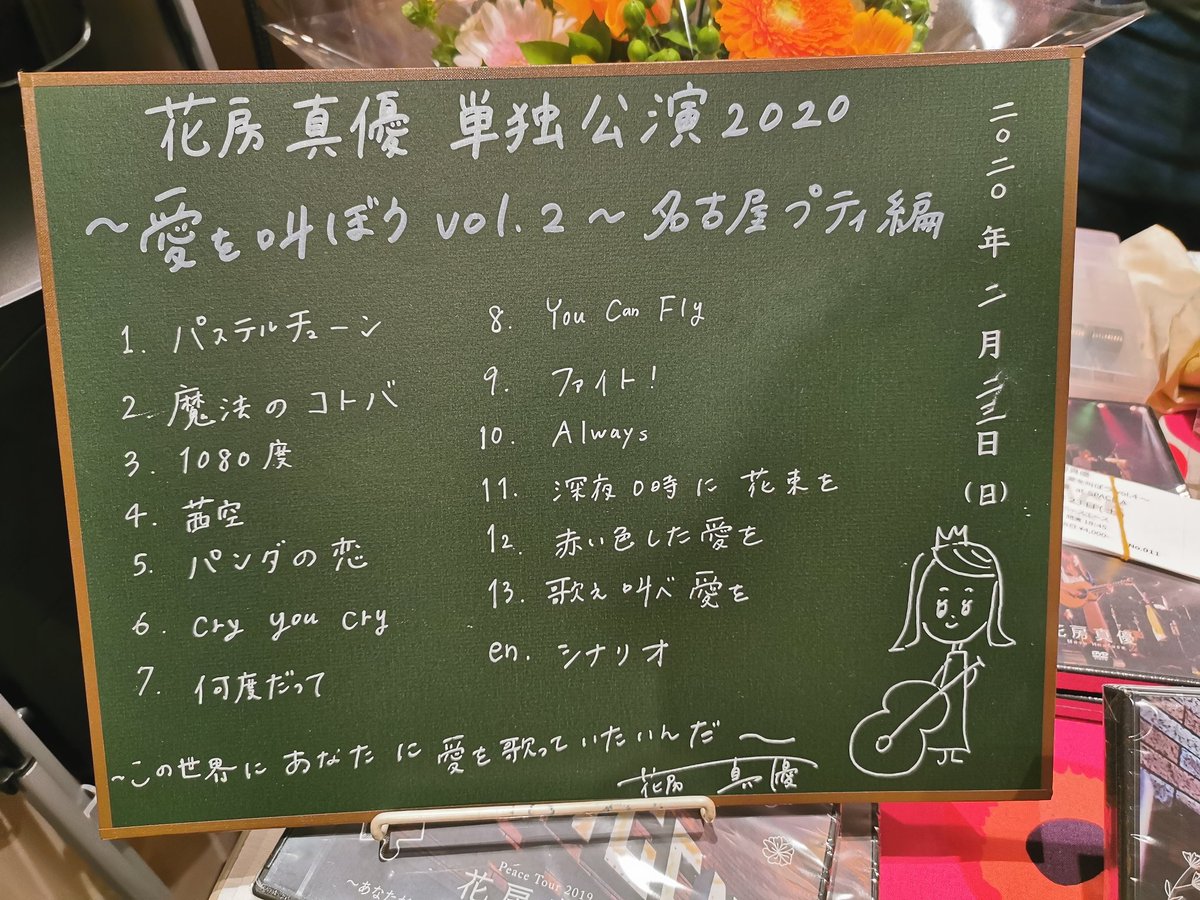 花房真優 単独公演2020
～愛を叫ぼうvol.2～名古屋プティ編
二〇二〇年二月二三日(日)
1. パステルチューン
2. 魔法のコトバ
3. 1080度
4. 茜空
5. パンダの恋
6. cry you cry
7. 何度だって
8. You Can Fly
9. ファイト!
10. Always
11. 深夜0時に花束を
12. 赤い色した愛を
13. 歌え叫べ愛を
en. シナリオ
～この世界にあなたに愛を歌っていたいんだ～
花房 真優
No.011
花房真優
DVD
Peace Tour 2019
～あなた
花房